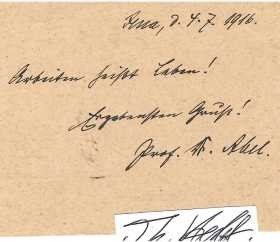 Jena, d. 4. 7. 1916.
Arbeiten heißt Leben!
Ergebensten Gruß!
Prof. K. Abel.
Th.